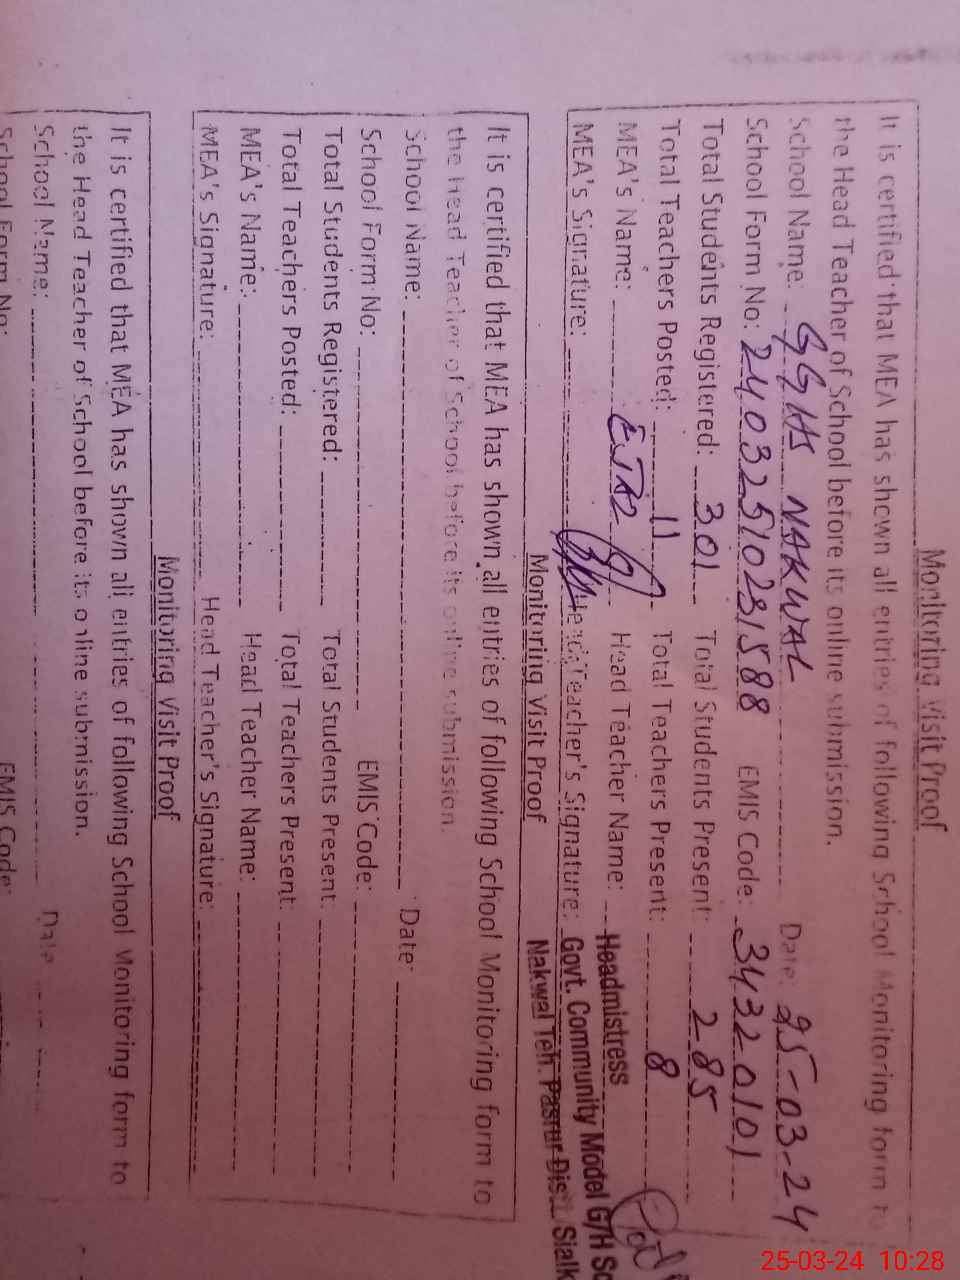 Monitoring Visit Proof
It is certified that MEA has shown all entries of following School Monitoring form to
the Head Teacher of School before its online submission.
School Name: GGHS NAKWAL Date: 25-03-24
School Form No: 24032510281588 EMIS Code: 34320101
Total Students Registered: 301 Total Students Present: 285
Total Teachers Posted: 11 Total Teachers Present: 8
MEA's Name: Head Teacher Name: Headmistress
MEA's Signature: Head Teacher's Signature: Govt. Community Model G/H Sc
Nakwal Teh. Pasrur Distt. Sialk
Monitoring Visit Proof
It is certified that MEA has shown all entries of following School Monitoring form to
the Head Teacher of School before its online submission.
School Name: Date:
School Form No: EMIS Code:
Total Students Registered: Total Students Present:
Total Teachers Posted: Total Teachers Present:
MEA's Name: Head Teacher Name:
MEA's Signature: Head Teacher's Signature:
Monitoring Visit Proof
It is certified that MEA has shown all entries of following School Monitoring form to
the Head Teacher of School before its online submission.
School Name: Date
School Form No: EMIS Code:
25-03-24 10:28